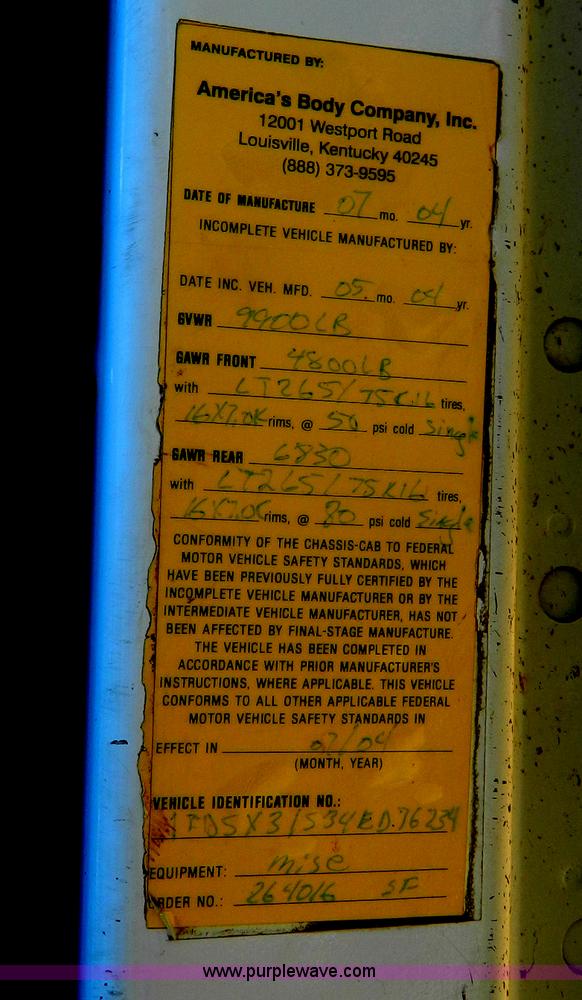 MANUFACTURED BY:
America's Body Company, Inc.
12001 Westport Road
Louisville, Kentucky 40245
(888) 373-9595
DATE OF MANUFACTURE 07 mo. 04 yr.
INCOMPLETE VEHICLE MANUFACTURED BY:
DATE INC. VEH. MFD. 05 mo. 04 yr.
GVWR 9900LB
GAWR FRONT 4800LB
with LT265/75R16 tires,
16X7.0K rims, @ 50 psi cold Single
GAWR REAR 6830
with LT265/75R16 tires,
16X7.0K rims, @ 80 psi cold Single
CONFORMITY OF THE CHASSIS-CAB TO FEDERAL
MOTOR VEHICLE SAFETY STANDARDS, WHICH
HAVE BEEN PREVIOUSLY FULLY CERTIFIED BY THE
INCOMPLETE VEHICLE MANUFACTURER OR BY THE
INTERMEDIATE VEHICLE MANUFACTURER, HAS NOT
BEEN AFFECTED BY FINAL-STAGE MANUFACTURE.
THE VEHICLE HAS BEEN COMPLETED IN
ACCORDANCE WITH PRIOR MANUFACTURER'S
INSTRUCTIONS, WHERE APPLICABLE. THIS VEHICLE
CONFORMS TO ALL OTHER APPLICABLE FEDERAL
MOTOR VEHICLE SAFETY STANDARDS IN
EFFECT IN 07/04
(MONTH, YEAR)
VEHICLE IDENTIFICATION NO.:
1FDSX31S34ED76234
EQUIPMENT: misc
ORDER NO.: 264016 SF
www.purplewave.com